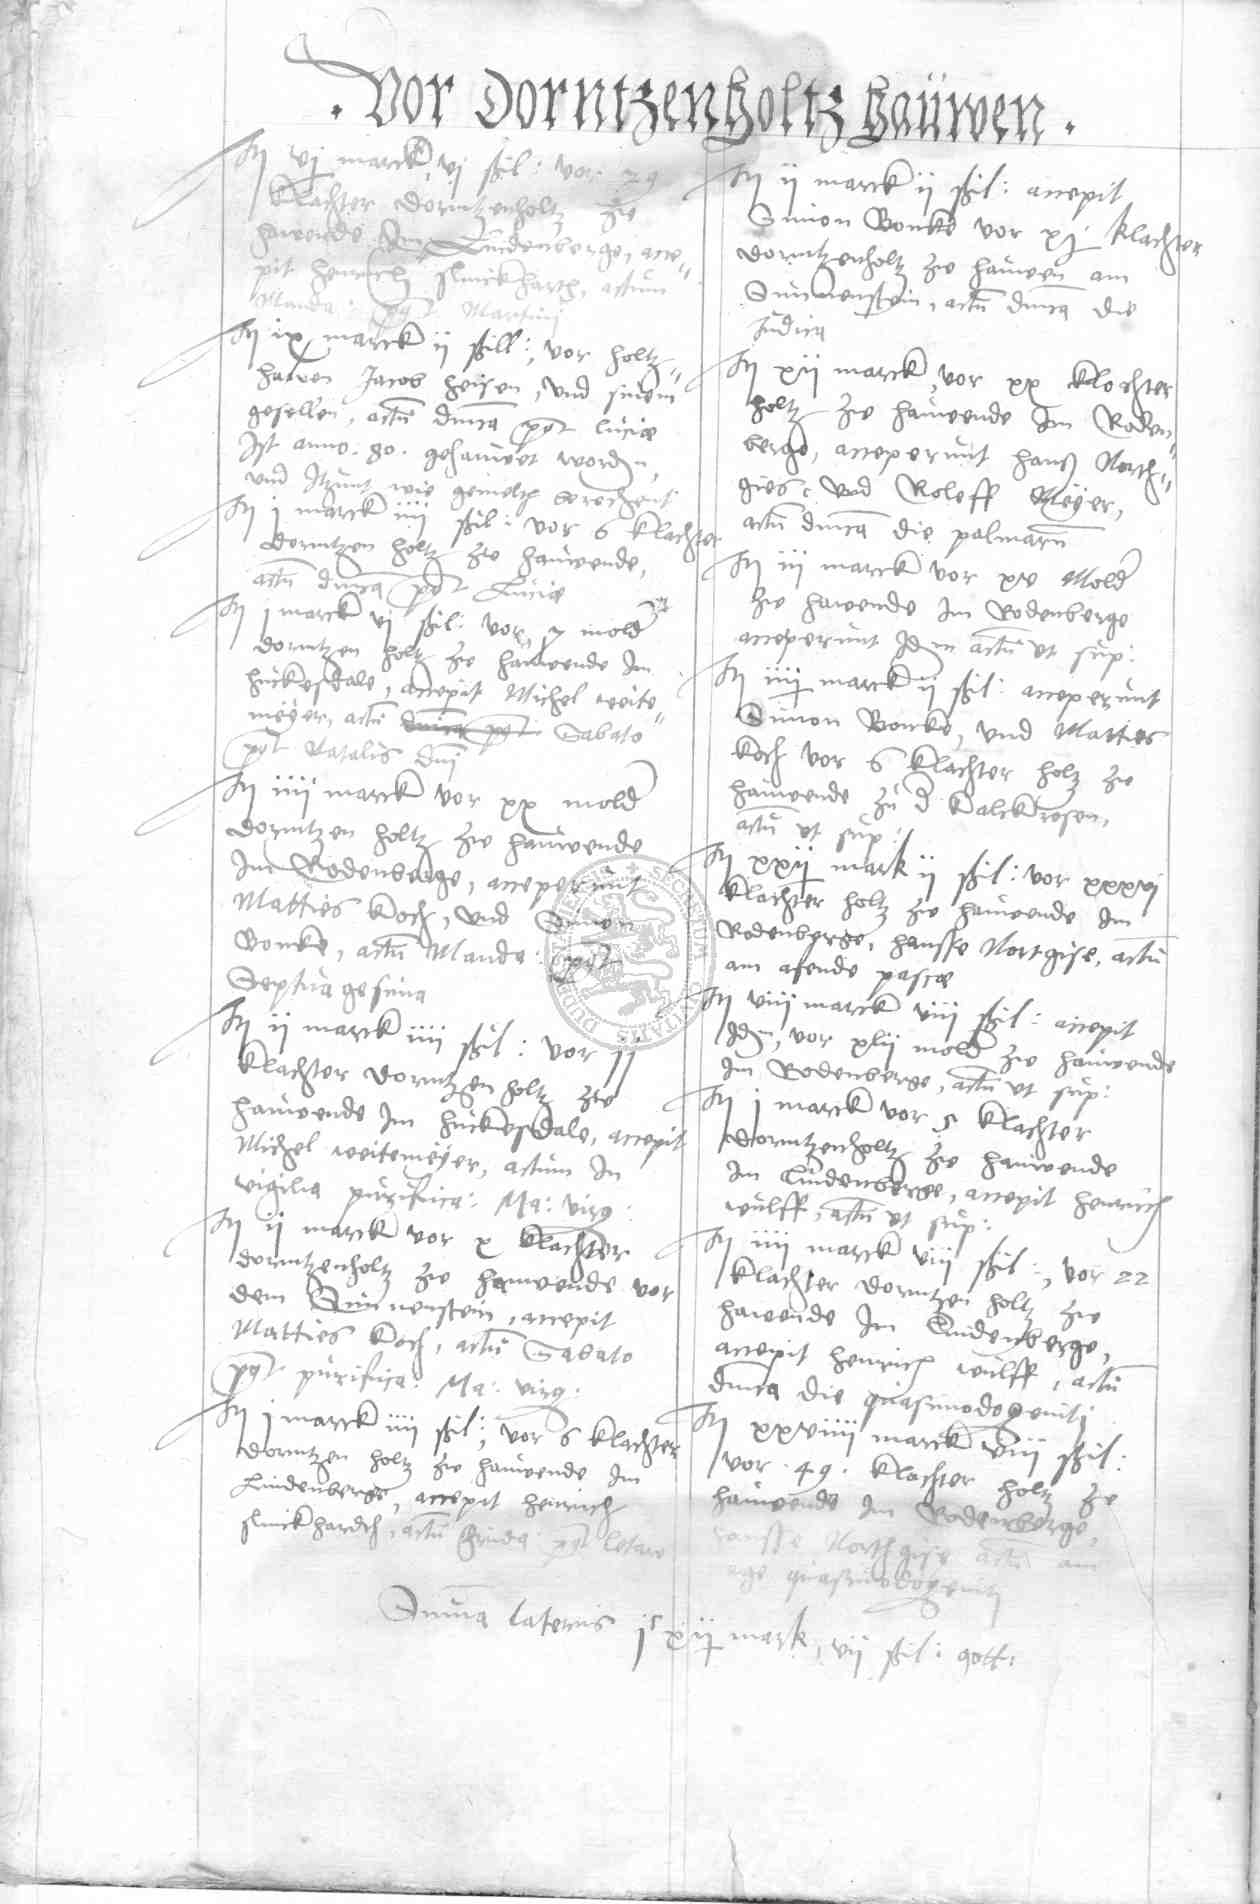 . Vor Dorntzenholtz haüwen .
Itm vj marck, vj ßil: vor 29
klachter dorntzenholtz zw
hawende Im Lindenberge, acce-
pit henrich slinckharth, actum
Manda: post Martinj
Itm ix marck ij ßill:, vor holtz-
hawen Jacob heisen, vnd sinem
gesellen, actũ dnica post Luciæ
Ist anno .80. gehauwet wordn,
vnd Itzunt wie gemelth berechent
Itm j marck iiij ßil: vor 6 klachter
dorntzen holtz zw hauwende,
actũ dnica post Luciæ
Itm j marck vj ßil: vor 7 mold
dorntzen holtz zw hauwende Im
huckesdale, accepit Michel weite-
meÿer, actũ dnica post Sabato
post Natalis dnj
Itm iiij marck vor xx mold
dorntzen holtz zw hauwende
Im Rodenberge, acceperunt
Matties koch, vnd Simon
Boncke, actũ Mande: post
Septuagesima
Itm ij marck iiij ßil: vor 11
klachter dorntzen holtz zw
hauwende Im huckesdale, accepit
Michel weitemeÿer, actum In
vigilia purifica: Ma: virg:
Itm ij marck vor x klachter
dorntzenholtz zw hauwende vor
dem Sunnenstein, accepit
Matties koch, actũ Sabato
post purifica: Ma: virg:
Itm j marck iiij ßil:, vor 6 klachter
dorntzen holtz zw hauwende Im
Lindenberge, accepit heinrich
slinckhardth, actũ post letare
Itm ij marck ij ßil: accepit
Simon Boncke vor xj klachter
dorntzenholtz zw hauwen am
Sunnenstein, actũ dnica die
Judica
Itm xij marck, vor xx klachter
holtz zw hauwende Im Roden-
berge, acceperunt hanß North-
gies, vnd Roleff Meÿer,
actũ dnica die palmarũ
Itm iij marck vor xv Mold
zw hawende Im Rodenberge
acceperunt Idm actũ vt sup:
Itm iiij marck ij ßil: acceperunt
Simon Boncke, vnd Matties
koch vor 6 klachter holtz zw
hauwende zu d kalckrosen,
actũ vt sup:
Itm xxij mark ij ßil: vor xxxvj
klachter holtz zw hauwende Im
Rodenberge, hansse Nortgise, actũ
am afende pascæ
Itm viij marck viij ßil: accepit
Idm, vor xlij mold zw hauwende
Im Rodenberge, actũ vt sup:
Itm j marck vor 5 klachter
dorntzenholtz zw hauwende
Im Lindenberge, accepit henrich
wulff, actũ vt sup:
Itm iiij marck viij ßil:, vor 22
klachter dorntzen holtz zw
hawende Im Lindenberge,
accepit henrich wulff, actũ
dnica die quasimodogenitj
Itm xxviiij marck viij ßil:
vor .49. klachter holtz zw
hauwende Im Rodenberge,
hansse Northgise actũ am
quasimodogenitj
Suma lateris jc xij mark, vij ßil: gott: